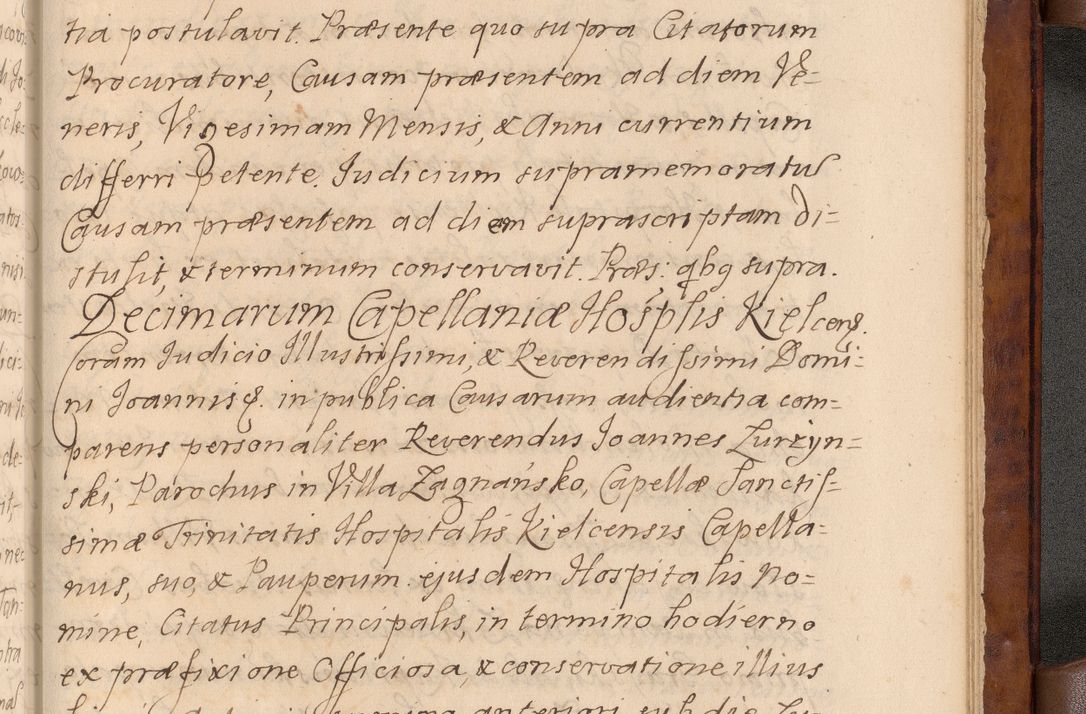 tia postulavit. Præsente quo supra Citatorum
Procuratore, Causam præsentem ad diem Ve=
neris, Vigesimam Mensis, & Anni currentium
differri petente. Iudicium supramemoratum
Causam præsentem ad diem suprascriptam di=
stulit, & terminum conservavit. Præs: qbg supra.
Decimarum Capellaniæ Hosplis Kielcens.
Coram Iudicio Illustrissimi, & Reverendissimi Domi=
ni Joannis &. in publica Causarum audientia com=
parens personaliter Reverendus Joannes Zurżyn=
ski, Parochus in Villa Zagnańsko, Capellæ Sanctis=
simæ Trinitatis Hospitalis Kielcensis Capella=
nus, suo, & Pauperum ejusdem Hospitalis no=
mine, Citatus Principalis, in termino hodierno
ex præfixione Officiosa, & conservatione illius
anteriori sub die